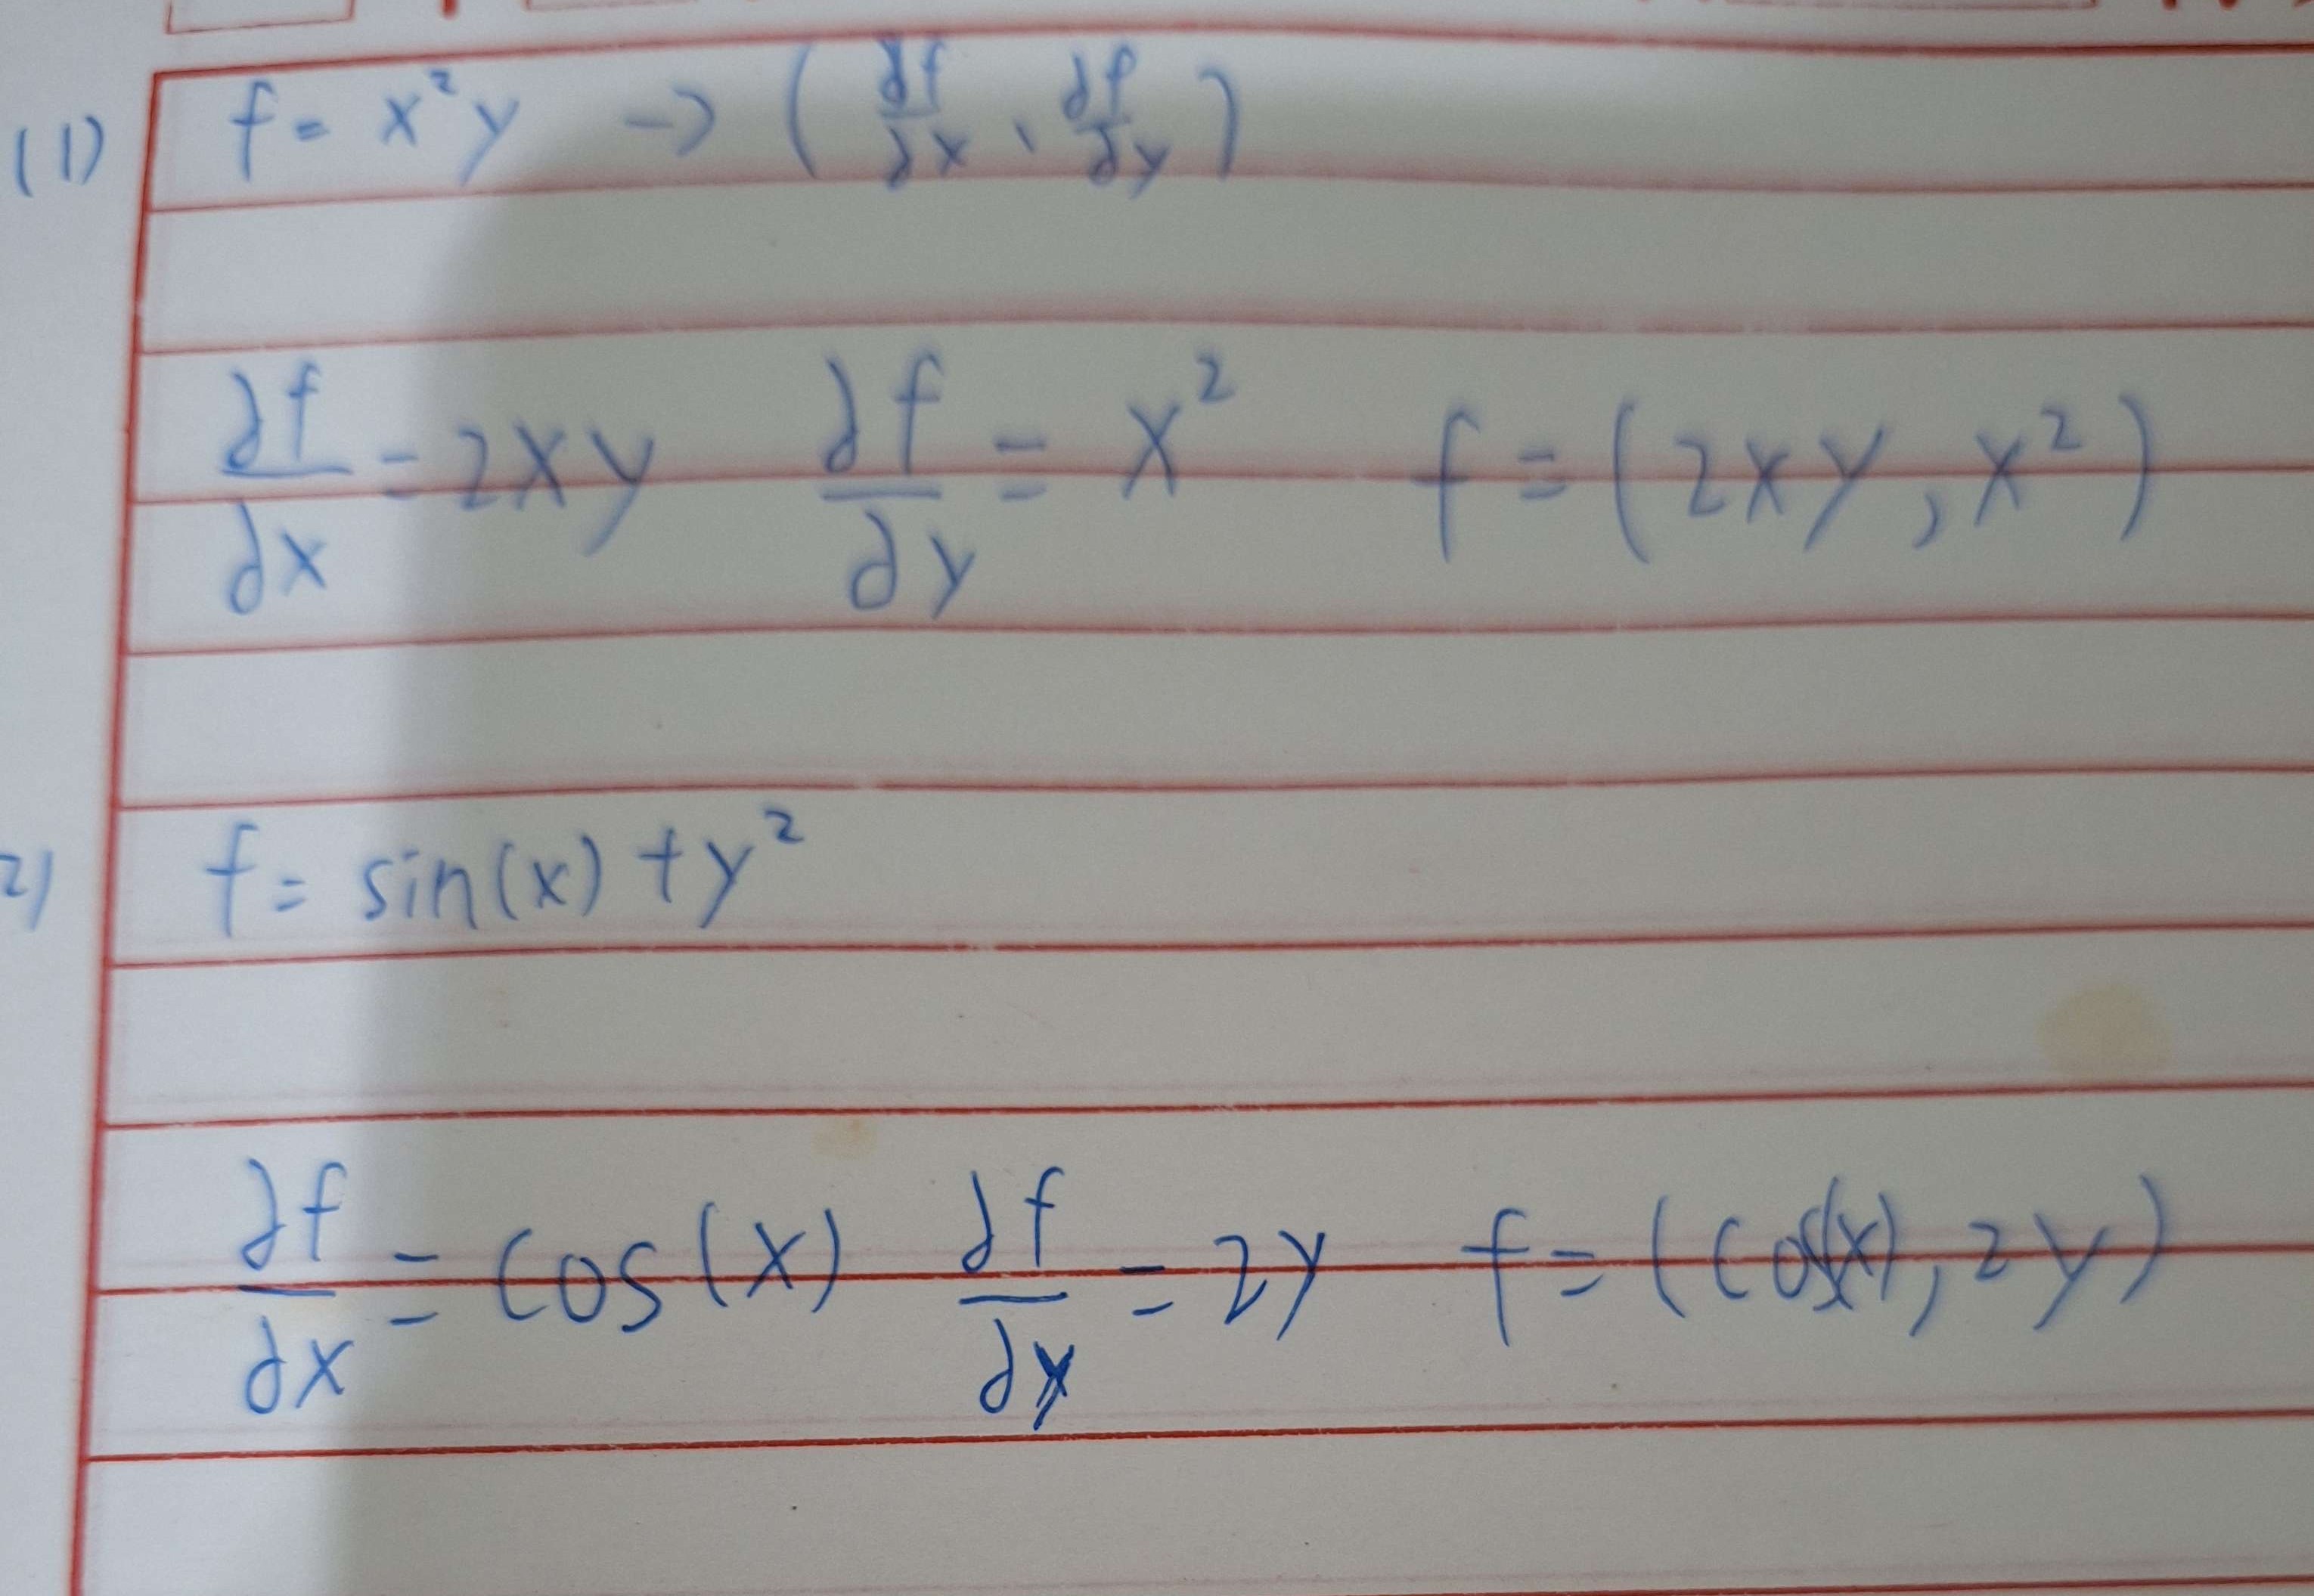 (1) f = x²y → (∂f/∂x, ∂f/∂y)
∂f/∂x = 2xy ∂f/∂y = x² f = (2xy, x²)
2) f = sin(x) + y²
∂f/∂x = cos(x) ∂f/∂y = 2y f = (cos(x), 2y)